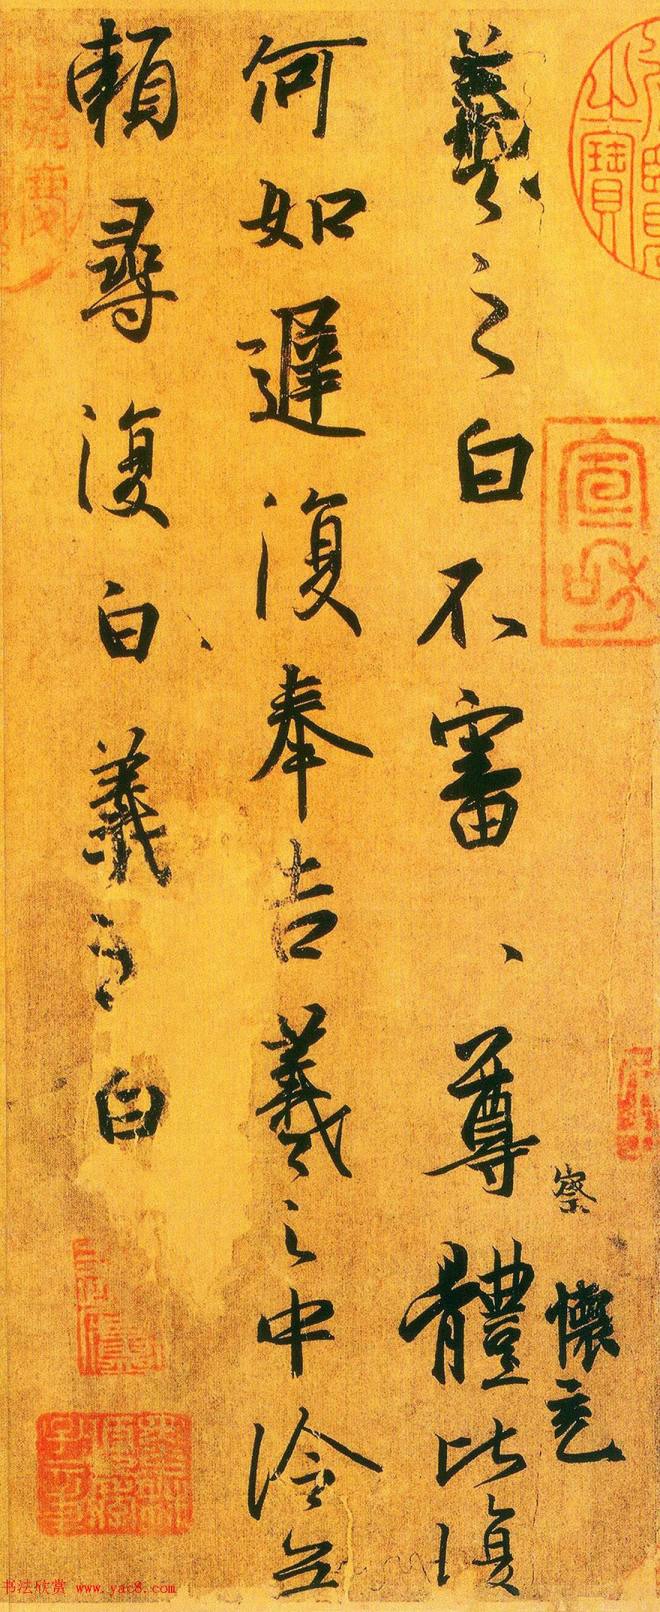 宣和
察
懷充
羲之白不審、尊體比復
何如遲復奉告羲之中冷無
賴尋復白羲之白
书法欣赏 www.yac8.com